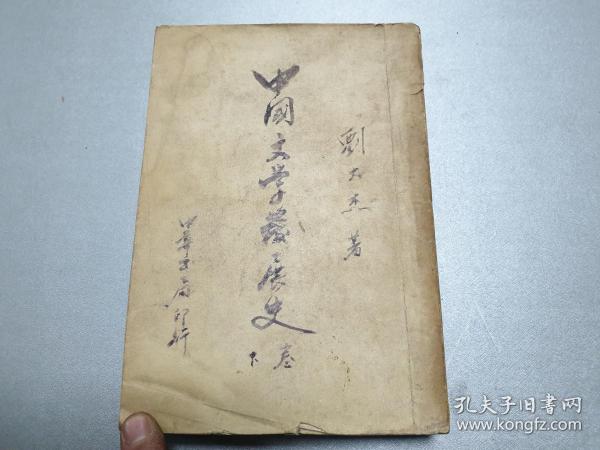 劉大杰著
中國文学發展史
下卷
中華書局印行
孔夫子旧书网
www.kongfz.com